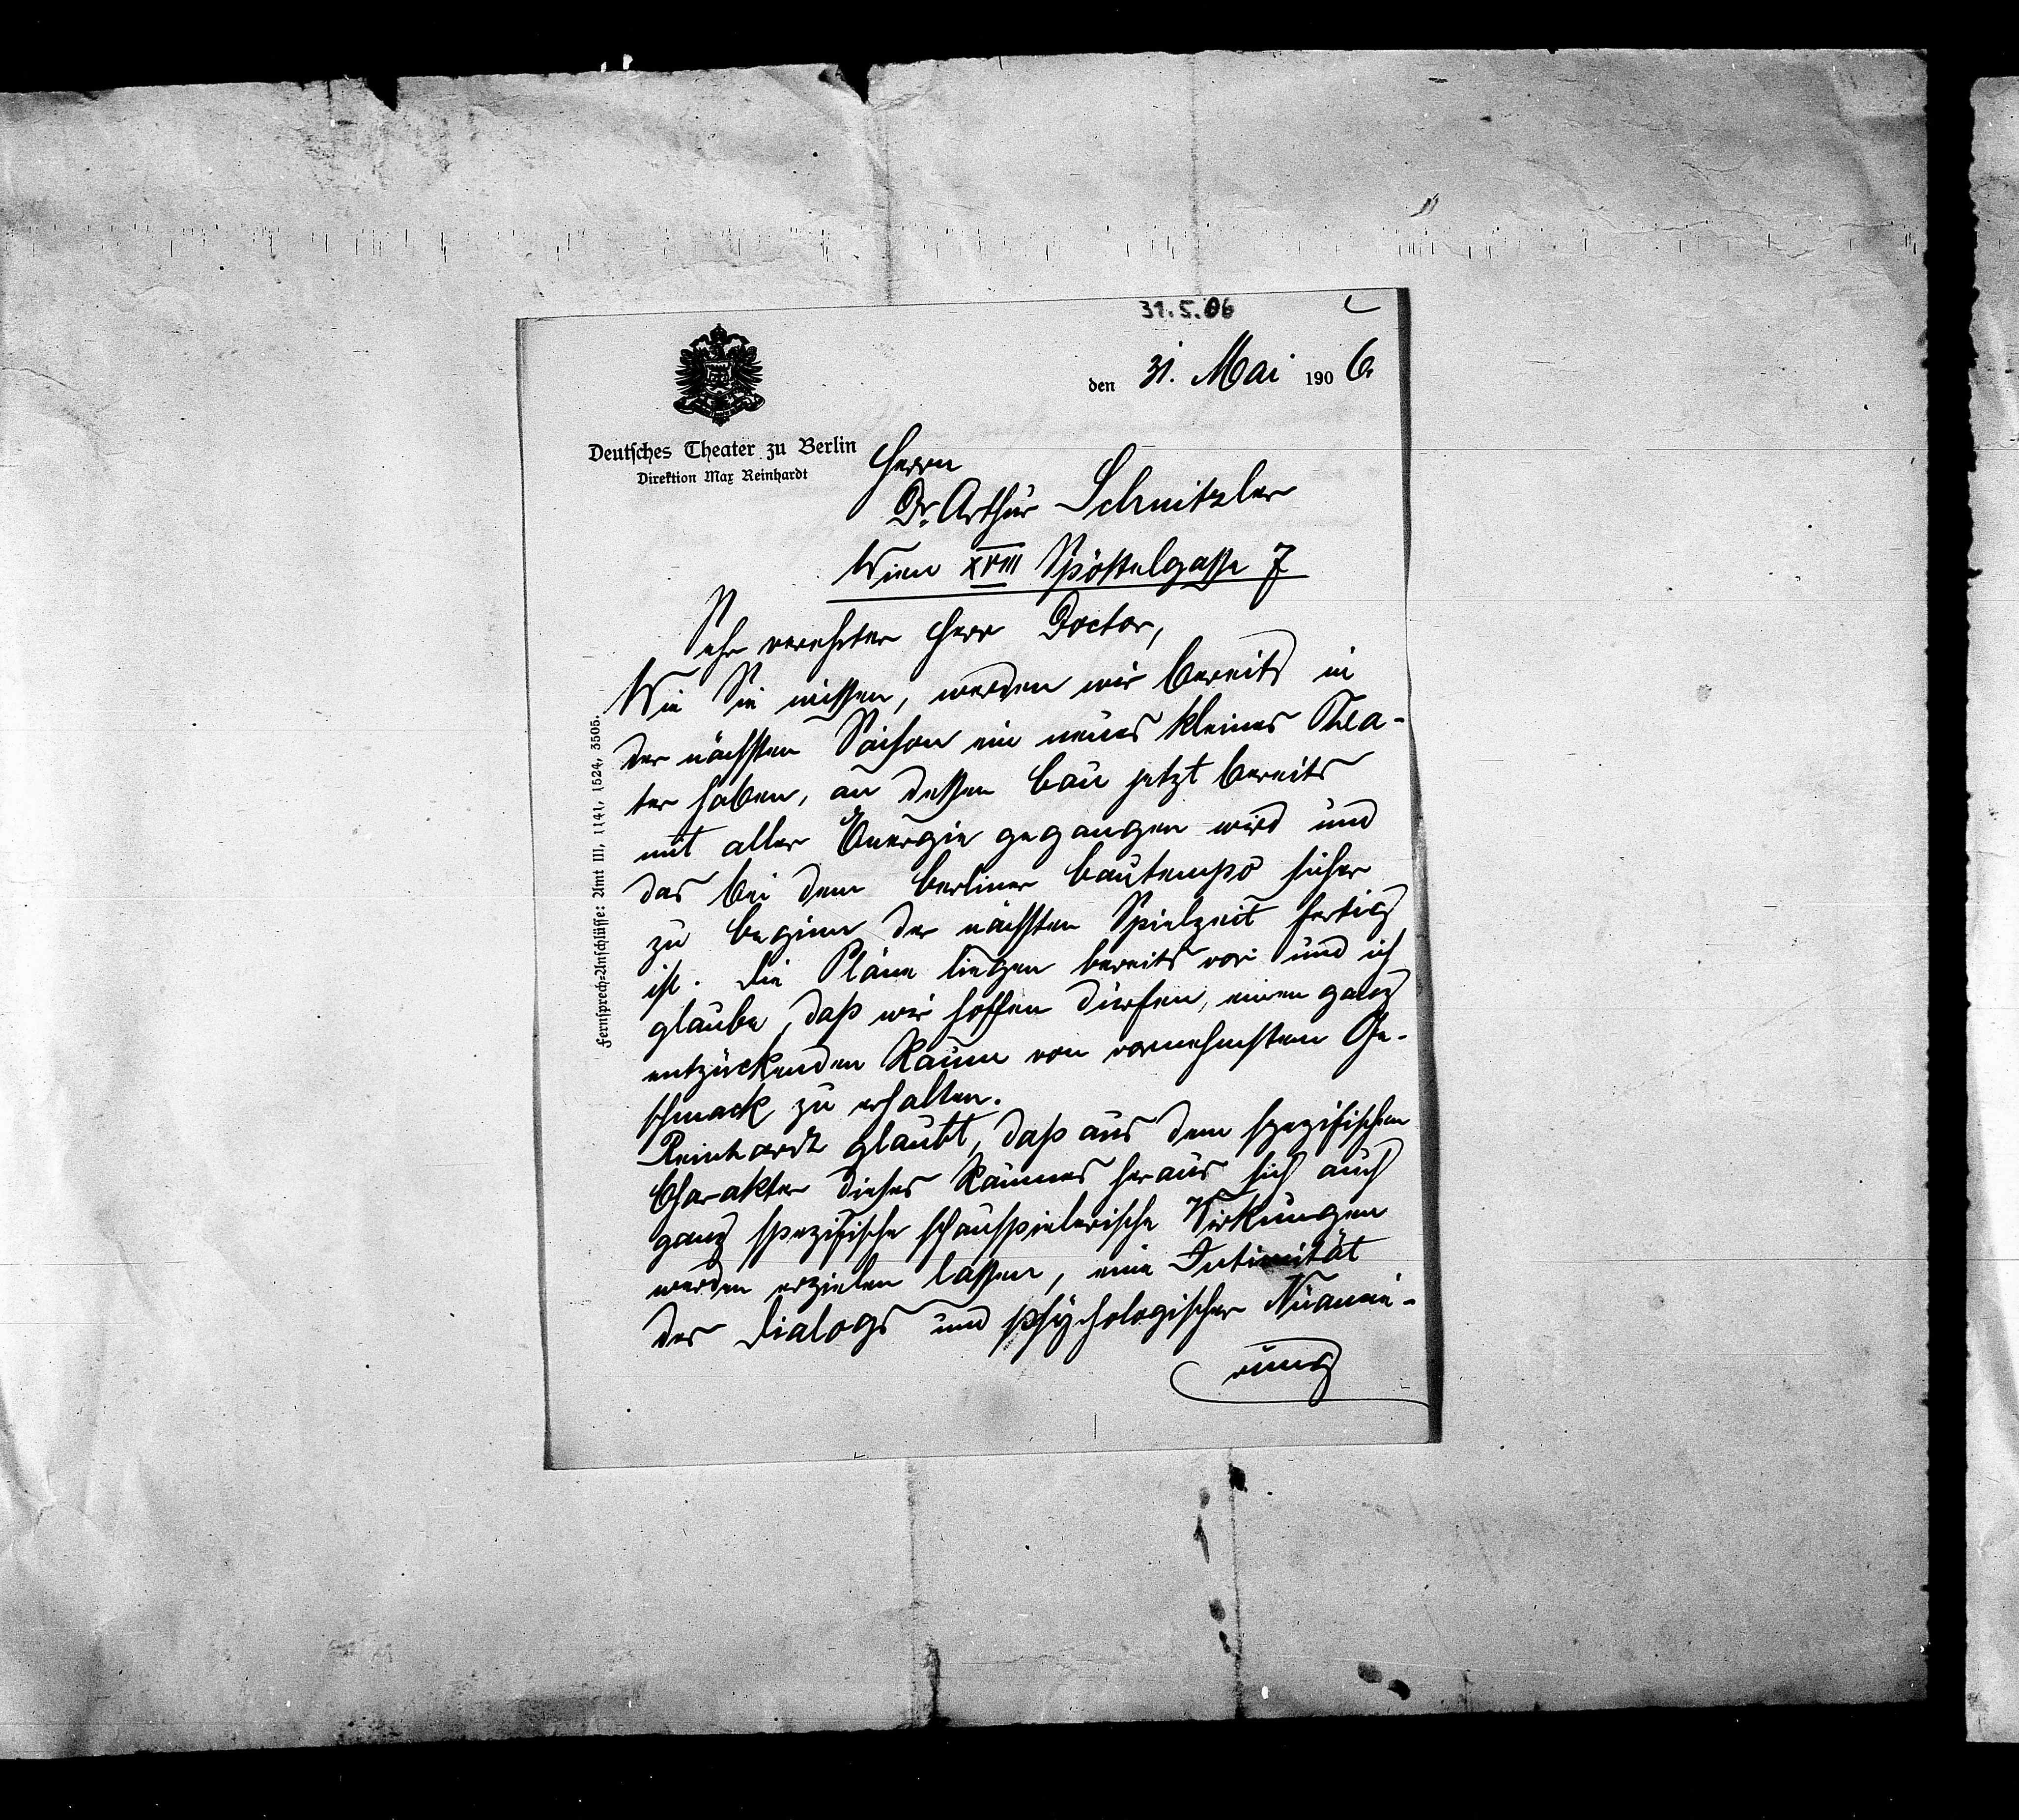 31.5.06
den 31. Mai 1906.
Deutsches Theater zu Berlin
Direktion Max Reinhardt
Herrn
Dr. Arthur Schnitzler
Wien XVIII Spöttelgasse 7
Sehr verehrter Herr Doctor,
Wie Sie wissen, werden wir bereits in
der nächsten Saison ein neues kleines Thea-
ter haben, an dessen Bau jetzt bereits
mit aller Energie gegangen wird und
das bei dem Berliner Bautempo sicher
zu Beginn der nächsten Spielzeit fertig
ist. Die Pläne liegen bereits vor und ich
glaube, daß wir hoffen dürfen, einen ganz
entzückenden Raum von vornehmstem Ge-
schmack zu erhalten.
Reinhardt glaubt, daß aus dem spezifischen
Charakter dieses Raumes heraus sich auch
ganz spezifische schauspielerische Wirkungen
werden erzielen lassen, eine Intimität
des Dialogs und psychologischer Nuancie-
rung
Fernsprech-Anschlüsse: Amt III, 1141, 1524, 3505.